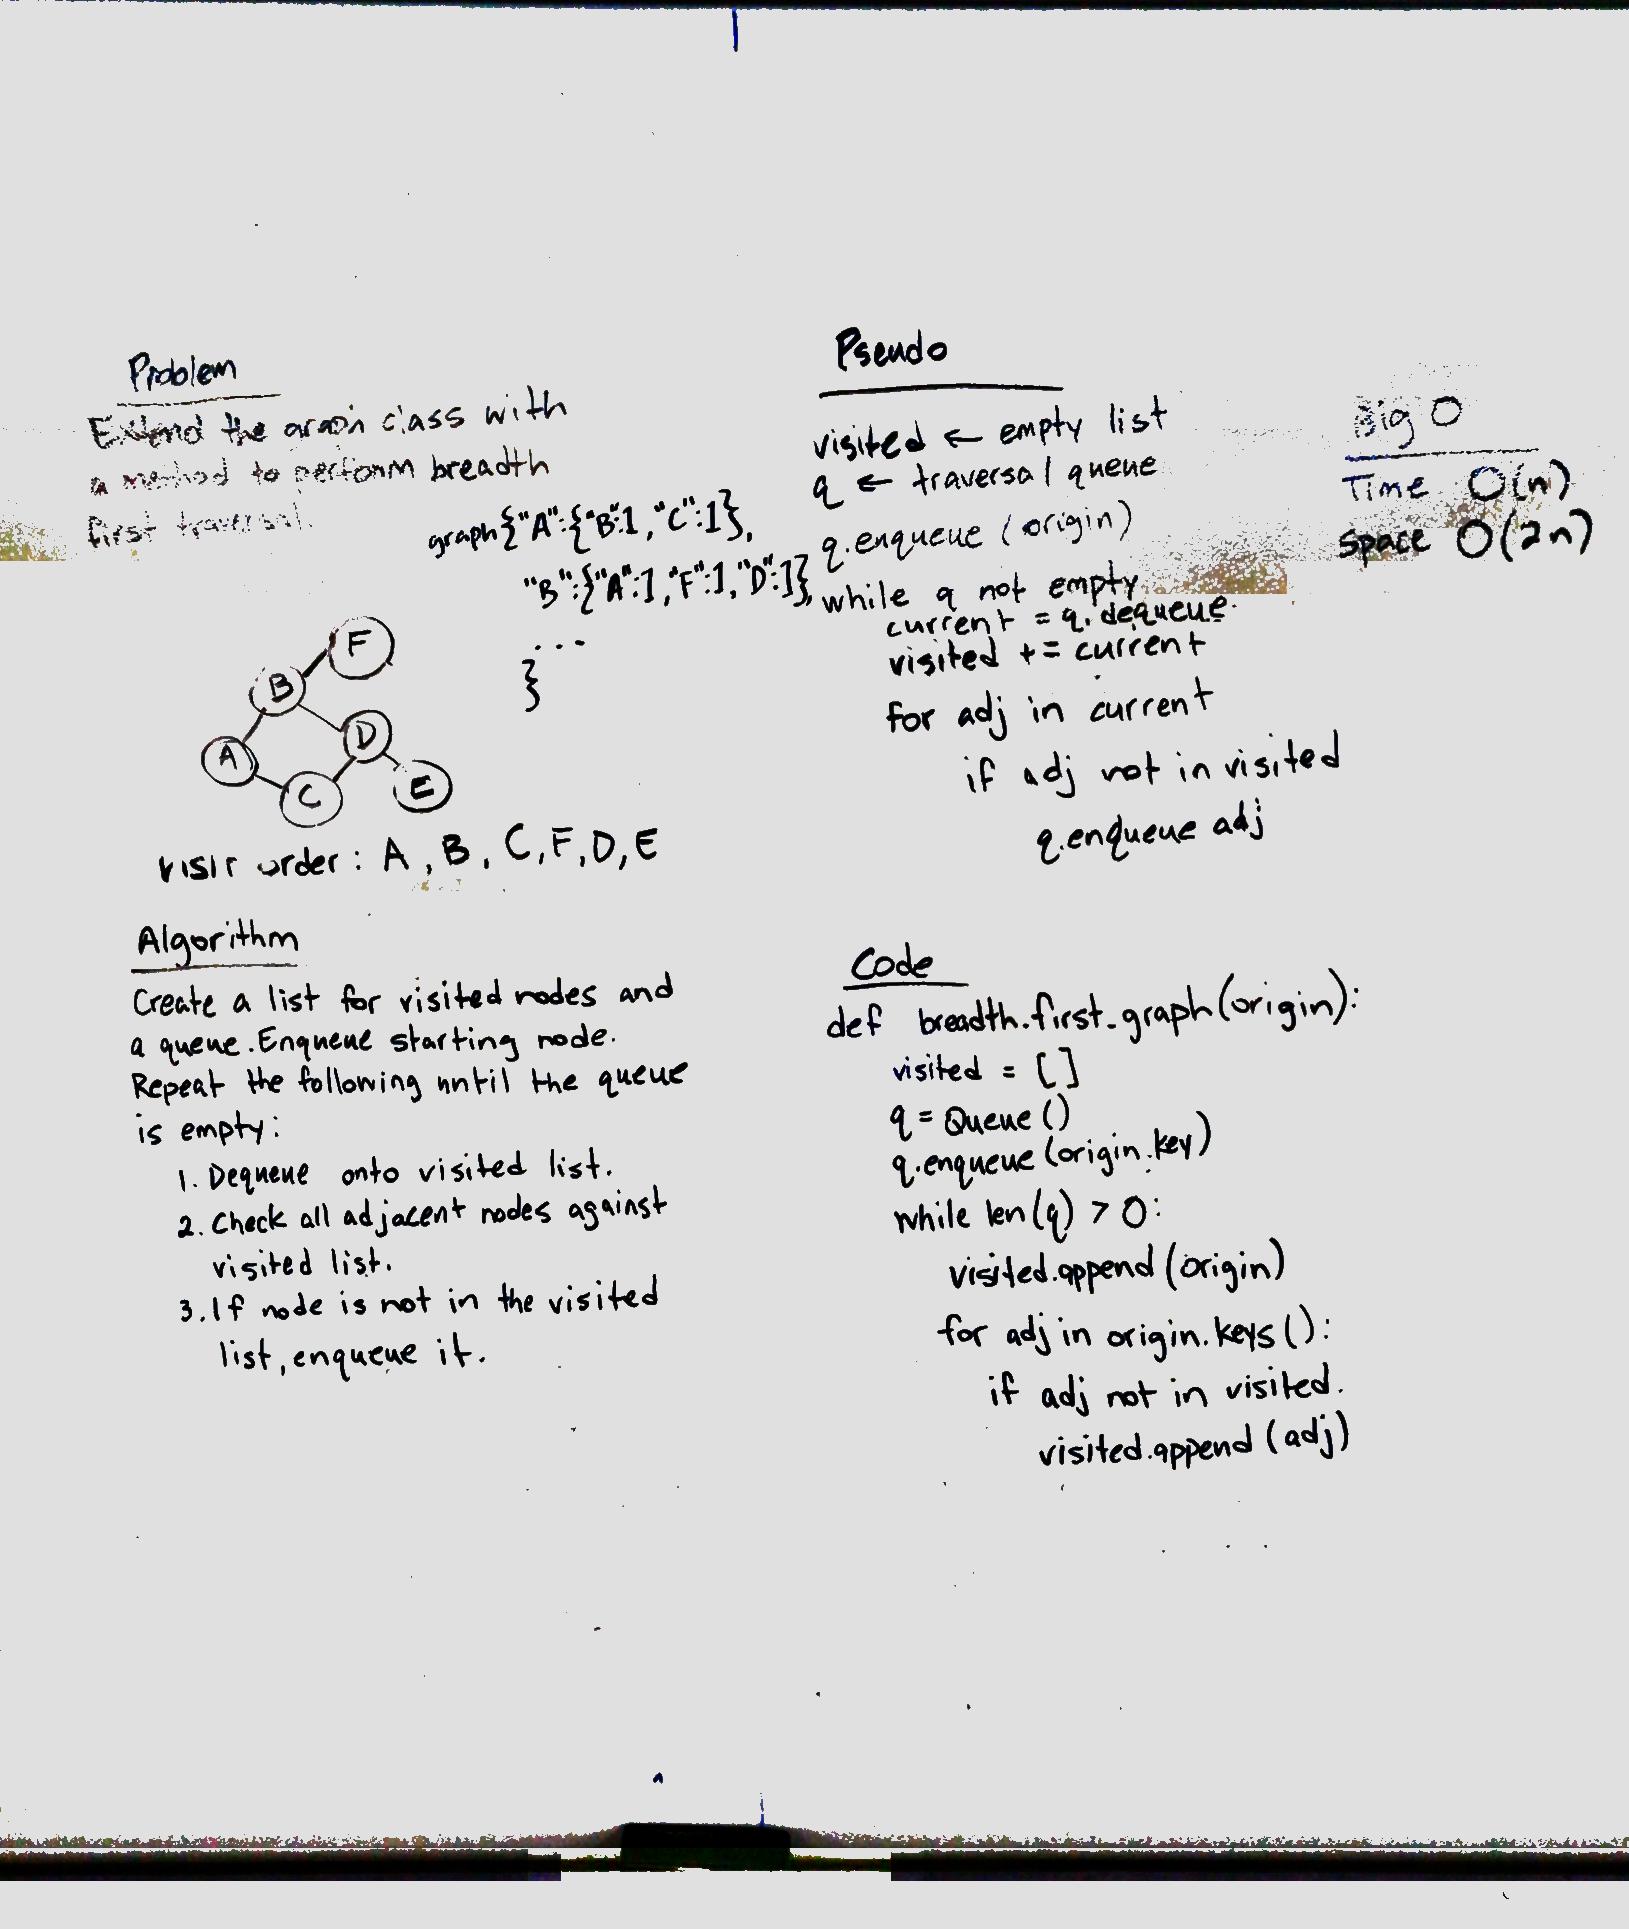 Problem
Extend the graph class with
a method to perform breadth
first traversal.
graph{"A":{"B":1,"C":1},
"B":{"A":1,"F":1,"D":1},
...
}
F
B
D
A
E
C
visit order: A, B, C, F, D, E
Algorithm
Create a list for visited nodes and
a queue. Enqueue starting node.
Repeat the following until the queue
is empty:
1. Dequeue onto visited list.
2. Check all adjacent nodes against
visited list.
3. If node is not in the visited
list, enqueue it.
Pseudo
visited ← empty list
q ← traversal queue
q.enqueue (origin)
while q not empty
current = q.dequeue
visited += current
for adj in current
if adj not in visited
q.enqueue adj
Code
def breadth.first.graph(origin):
visited = []
q = Queue()
q.enqueue(origin.key)
while len(q) > 0:
visited.append(origin)
for adj in origin.keys():
if adj not in visited.
visited.append(adj)
Big O
Time O(n)
Space O(2n)